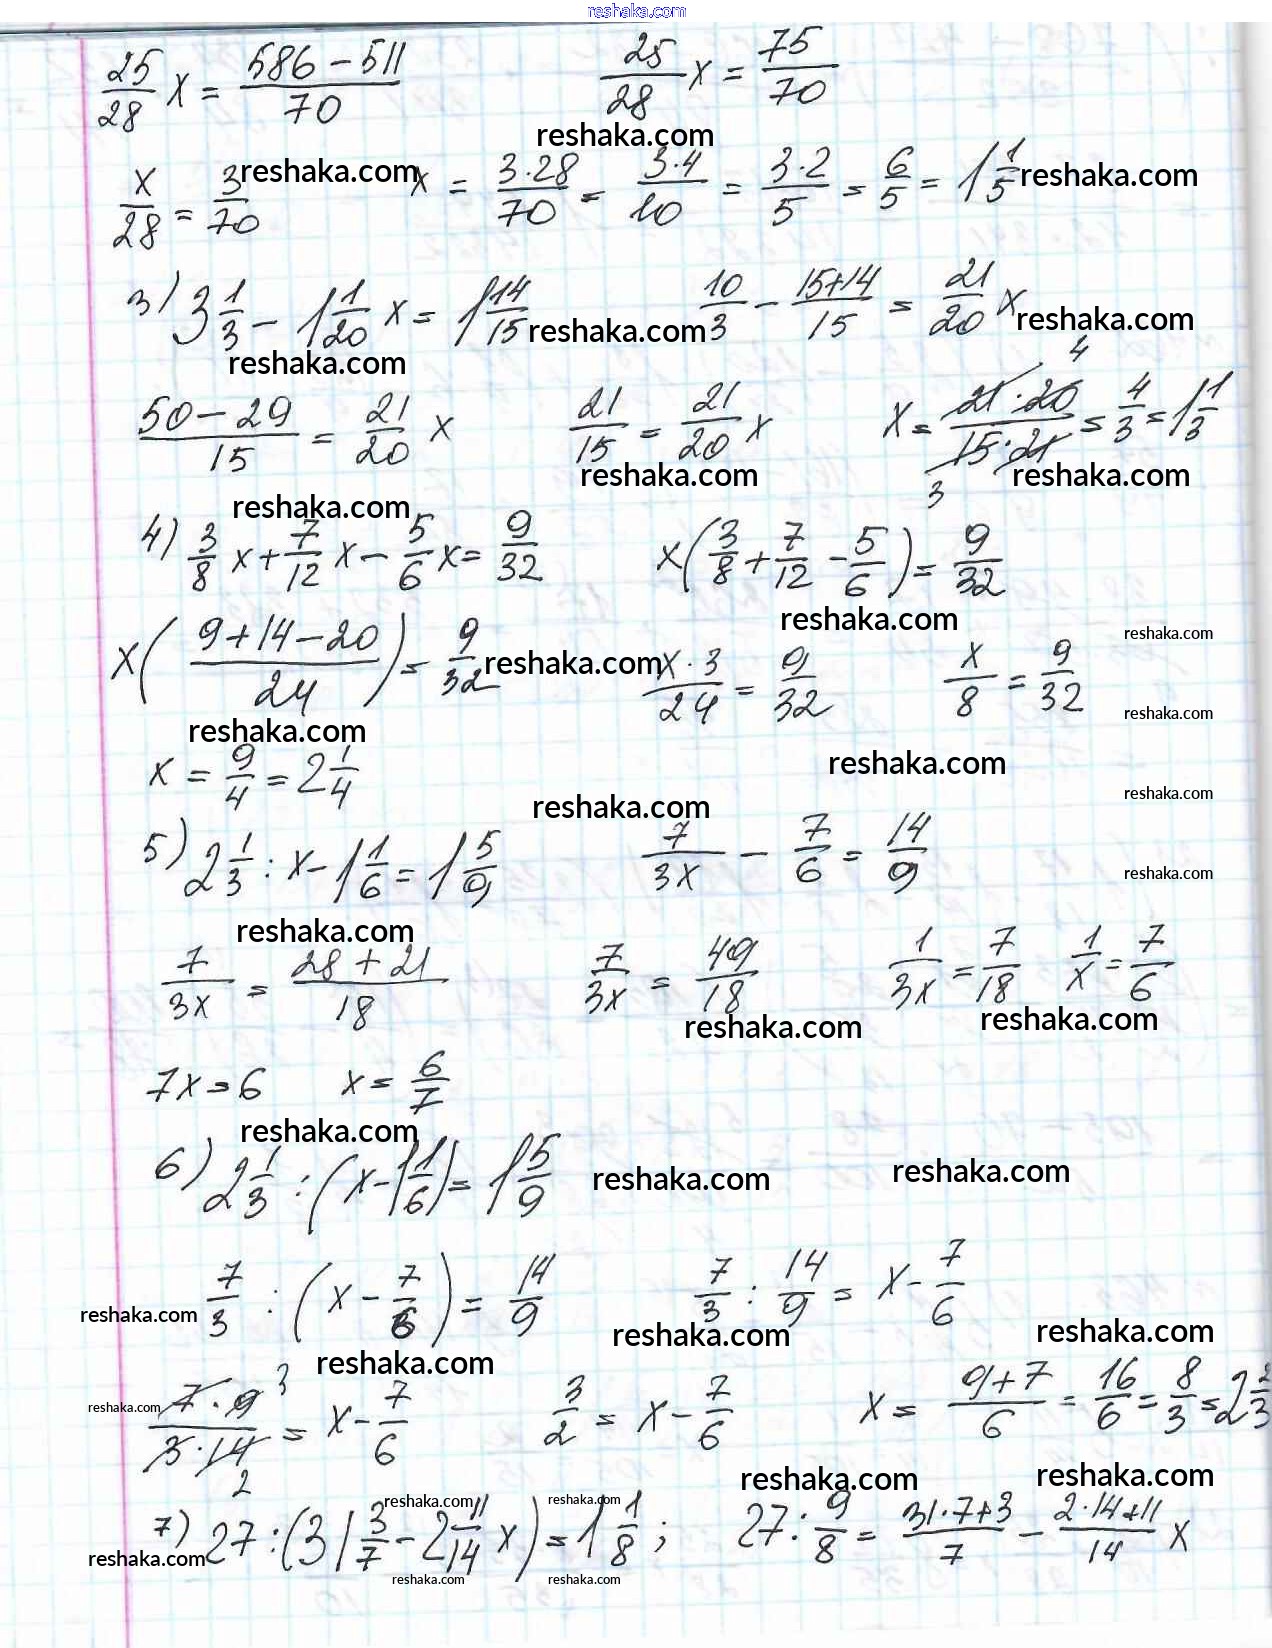 reshaka.com
25/28 x = (586 - 511)/70    25/28 x = 75/70
reshaka.com
x/28 = 3/70 reshaka.com x = (3·28)/70 = (3·4)/10 = (3·2)/5 = 6/5 = 1 1/5 reshaka.com
3) 3 1/3 - 1 1/20 x = 1 14/15 reshaka.com 10/3 - (15+14)/15 = 21/20 x reshaka.com
reshaka.com
(50 - 29)/15 = 21/20 x    21/15 = 21/20 x    x = (21·20)/(15·21) = 4/3 = 1 1/3
4
3
reshaka.com reshaka.com
reshaka.com
4) 3/8 x + 7/12 x - 5/6 x = 9/32    x(3/8 + 7/12 - 5/6) = 9/32
reshaka.com reshaka.com
x((9+14-20)/24) = 9/32 reshaka.com (x·3)/24 = 9/32    x/8 = 9/32
reshaka.com
reshaka.com
x = 9/4 = 2 1/4 reshaka.com
reshaka.com
reshaka.com
5) 2 1/3 : x - 1 1/6 = 1 5/9    7/(3x) - 7/6 = 14/9
reshaka.com
reshaka.com
7/(3x) = (28+21)/18    7/(3x) = 49/18    1/(3x) = 7/18    1/x = 7/6
reshaka.com reshaka.com
7x = 6    x = 6/7
reshaka.com
6) 2 1/3 : (x - 1 1/6) = 1 5/9 reshaka.com reshaka.com
7/3 : (x - 7/6) = 14/9    7/3 : 14/9 = x - 7/6
reshaka.com reshaka.com reshaka.com
reshaka.com
reshaka.com (7·9)/(3·14) = x - 7/6    3/2 = x - 7/6    x = (9+7)/6 = 16/6 = 8/3 = 2 2/3
3
2
reshaka.com reshaka.com
reshaka.com reshaka.com
7) 27 : (31 3/7 - 2 11/14 x) = 1 1/8 ;    27 : 9/8 = (31·7+3)/7 - (2·14+11)/14 x
reshaka.com reshaka.com reshaka.com